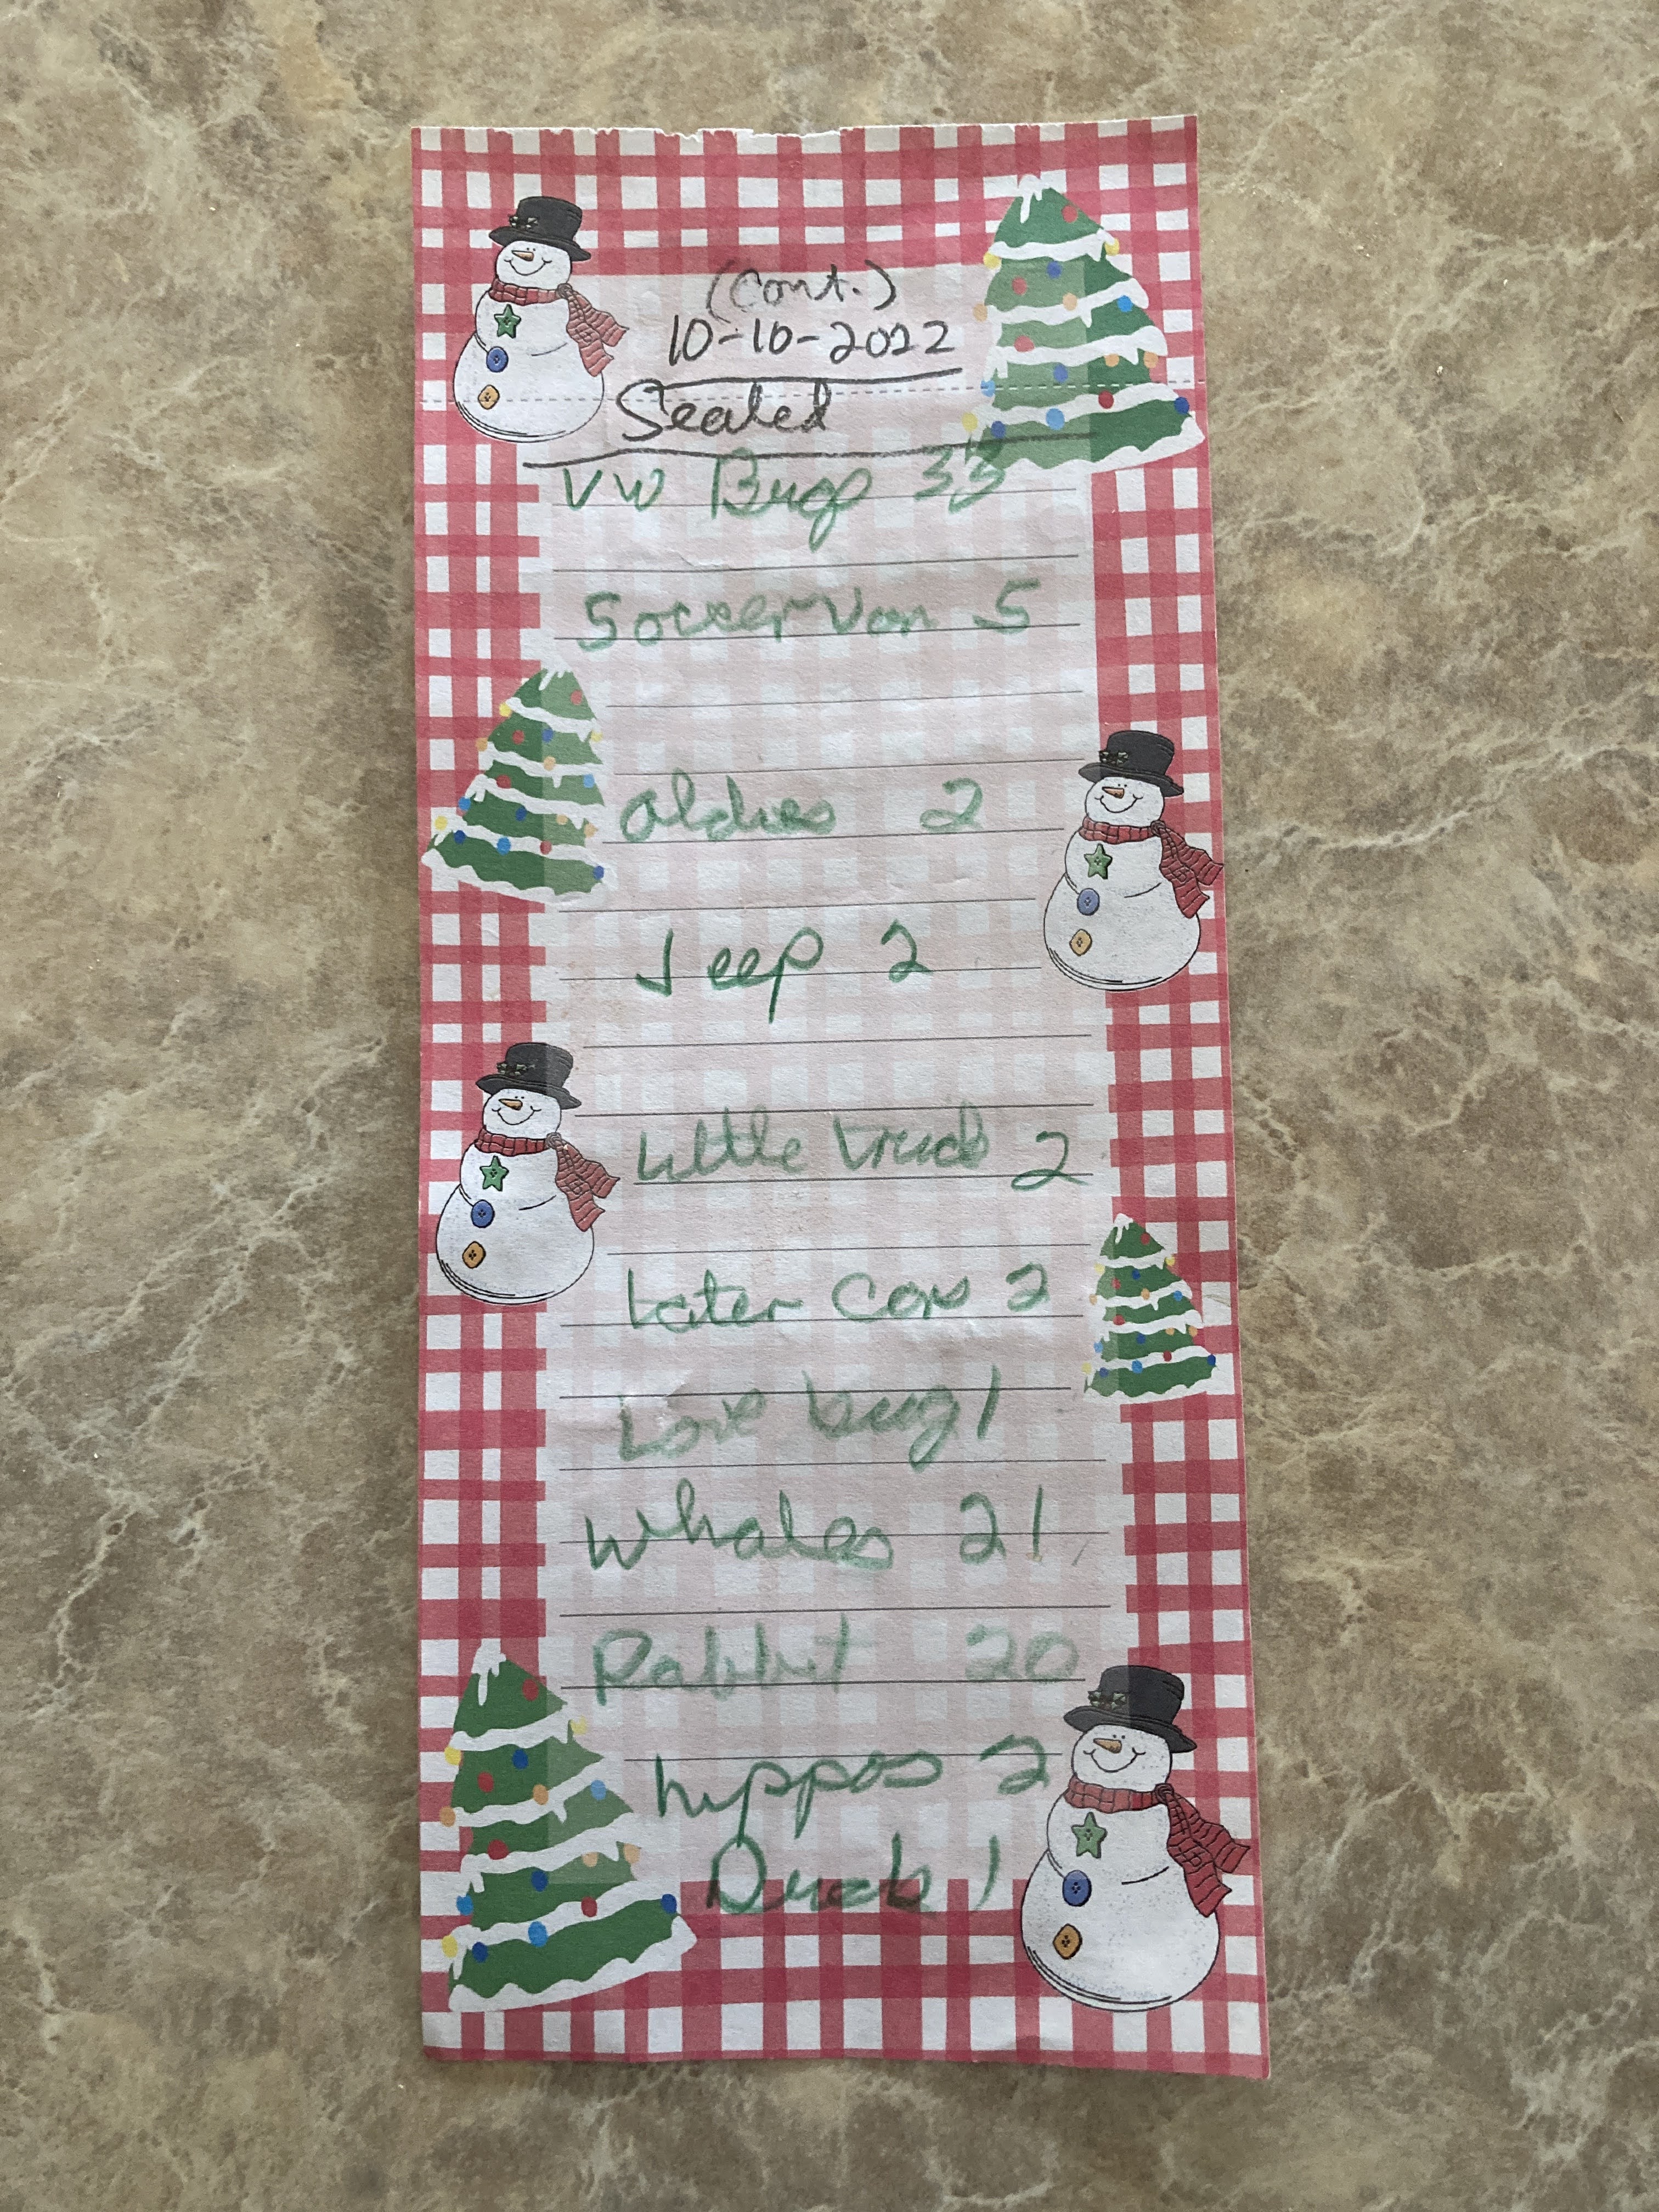 (Cont.)
10-10-2022
Sealed
VW Bugs 33
Soccer Van 5
oldies 2
Jeep 2
Little truck 2
Later Cars 2
Love bug 1
Whales 21
Rabbit 20
hippos 2
Duck 1